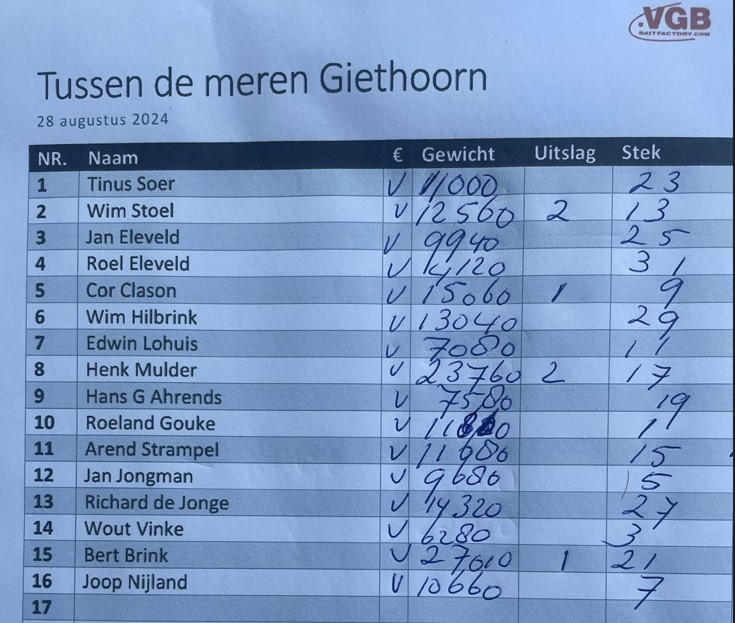 VGB
BAITFACTORY.COM
Tussen de meren Giethoorn
28 augustus 2024
NR. Naam € Gewicht Uitslag Stek
1 Tinus Soer V 11000 23
2 Wim Stoel V 12560 2 13
3 Jan Eleveld V 9940 25
4 Roel Eleveld V 14120 31
5 Cor Clason V 15060 1 9
6 Wim Hilbrink V 13040 29
7 Edwin Lohuis V 7080 11
8 Henk Mulder V 23760 2 17
9 Hans G Ahrends V 7580 19
10 Roeland Gouke V 1
11 Arend Strampel V 11680 15
12 Jan Jongman V 9680 5
13 Richard de Jonge V 14320 27
14 Wout Vinke V 6280 3
15 Bert Brink V 27610 1 21
16 Joop Nijland V 10660 7
17